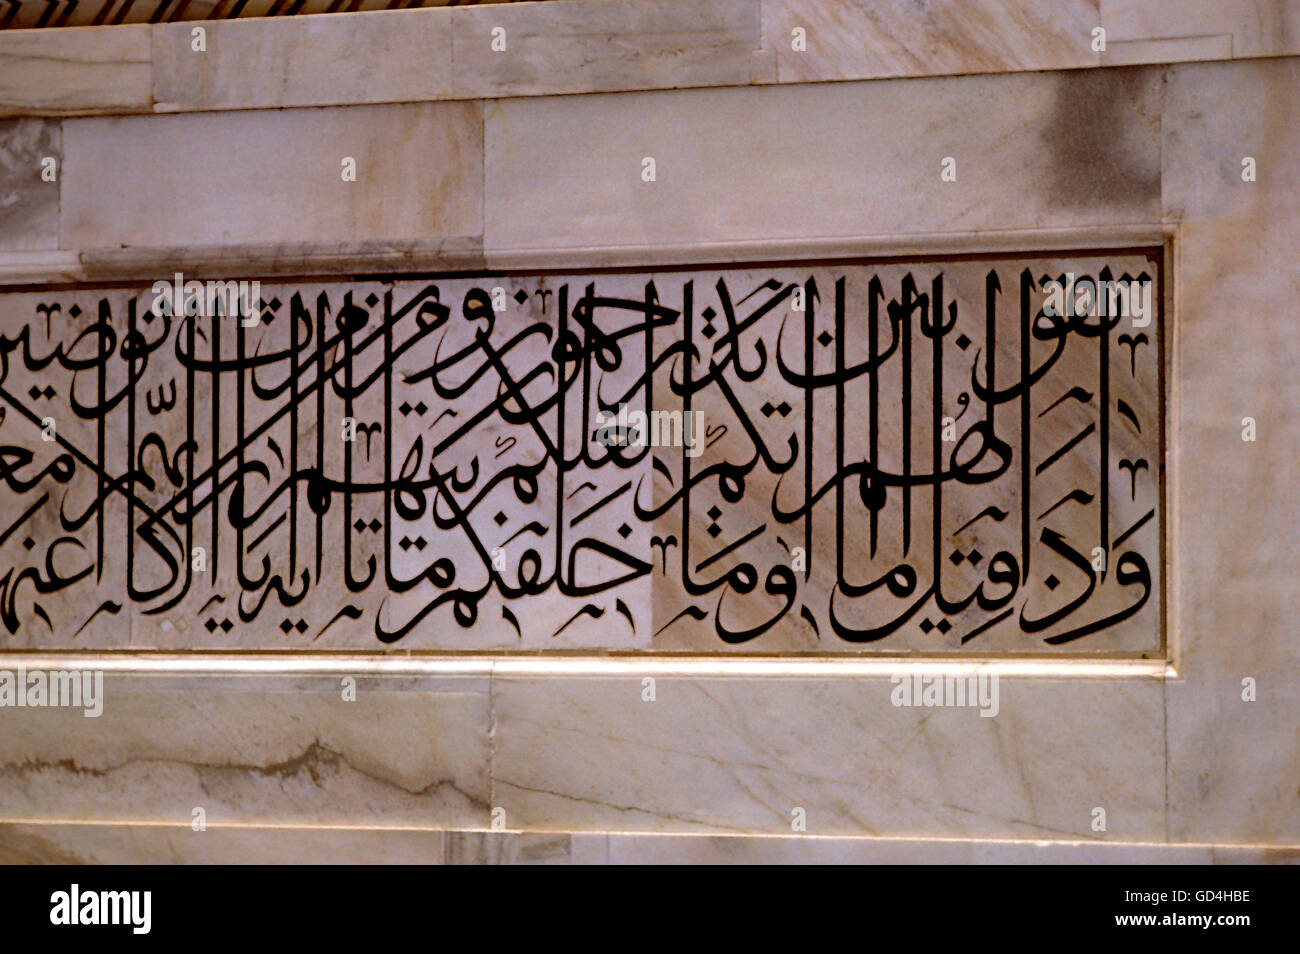 وإذا قيل لهم اتقوا ما بين أيديكم وما خلفكم لعلكم ترحمون وما تأتيهم من آية من آيات ربهم إلا كانوا عنها معرضين
alamy
Image ID: GD4HBE
www.alamy.com